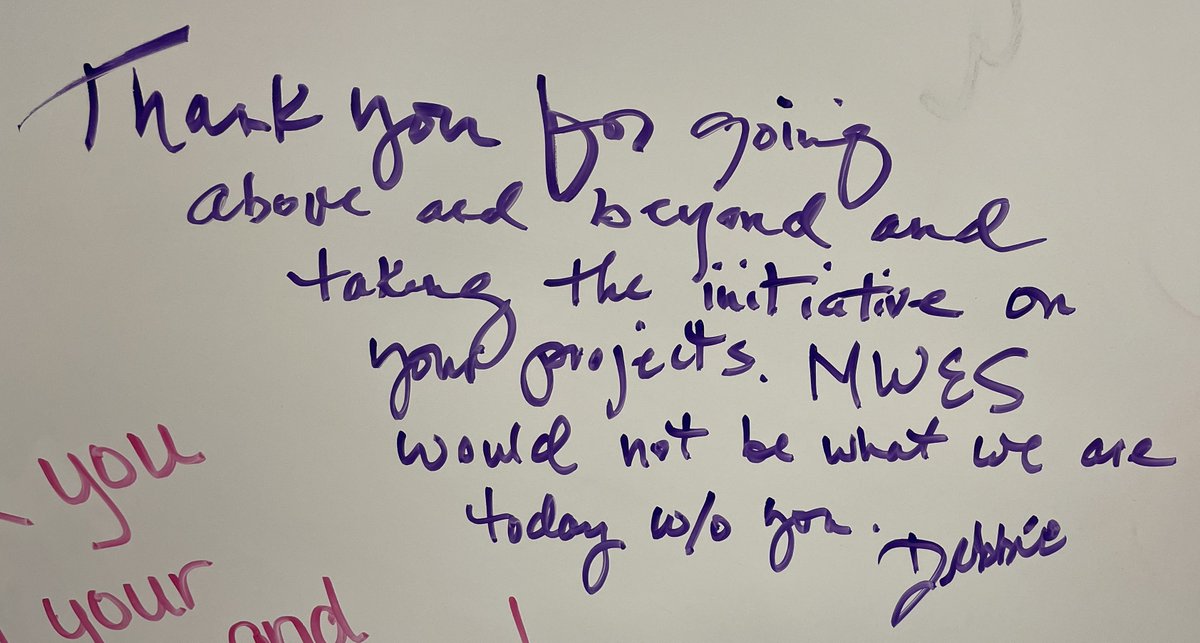 Thank you for going
above and beyond and
taking the initiative on
your projects. MWES
would not be what we are
today w/o you.
Debbie
you
your
and